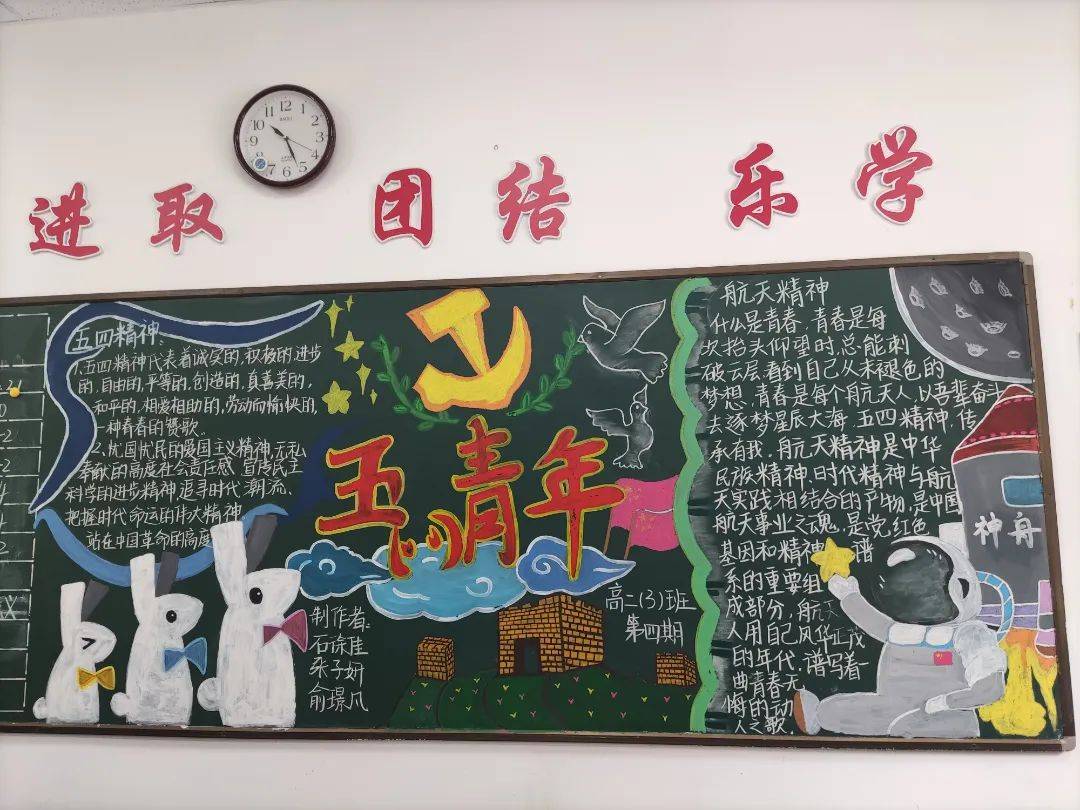 进取 团结 乐学
12
1
2
3
4
5
6
7
9
10
11
五四精神:
1.五四精神代表着诚实的,积极的,进步
的,自由的,平等的,创造的,真善美的,
和平的,相爱相助的,劳动而愉快的,
一种青春的赞歌.
2.忧国忧民的爱国主义精神,无私
奉献的高度社会责任感,宣传民主
科学的进步精神,追寻时代潮流、
把握时代命运的伟大精神
站在中国革命的高度
五四青年
制作者:
石涂佳
张子妍
俞璟凡
高二(3)班
第四期
航天精神
什么是青春,青春是每
次抬头仰望时,总能刺
破云层看到自己从未褪色的
梦想,青春是每个航天人,以吾辈奋斗
去逐梦星辰大海,五四精神,传
承有我,航天精神是中华
民族精神,时代精神与航
天实践相结合的产物,是中国
航天事业之魂,是党红色
基因和精神 谱
系的重要组
成部分,航天
人用自己风华正茂
的年代,谱写着
曲青春无
悔的动
人之歌.
神舟